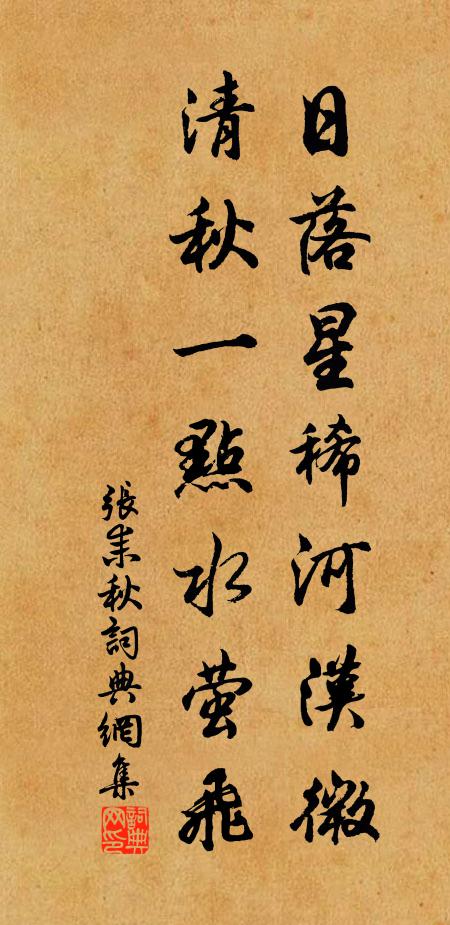 日落星稀河漢微
清秋一點水萤飛
張耒秋詞典網集
詞典網印